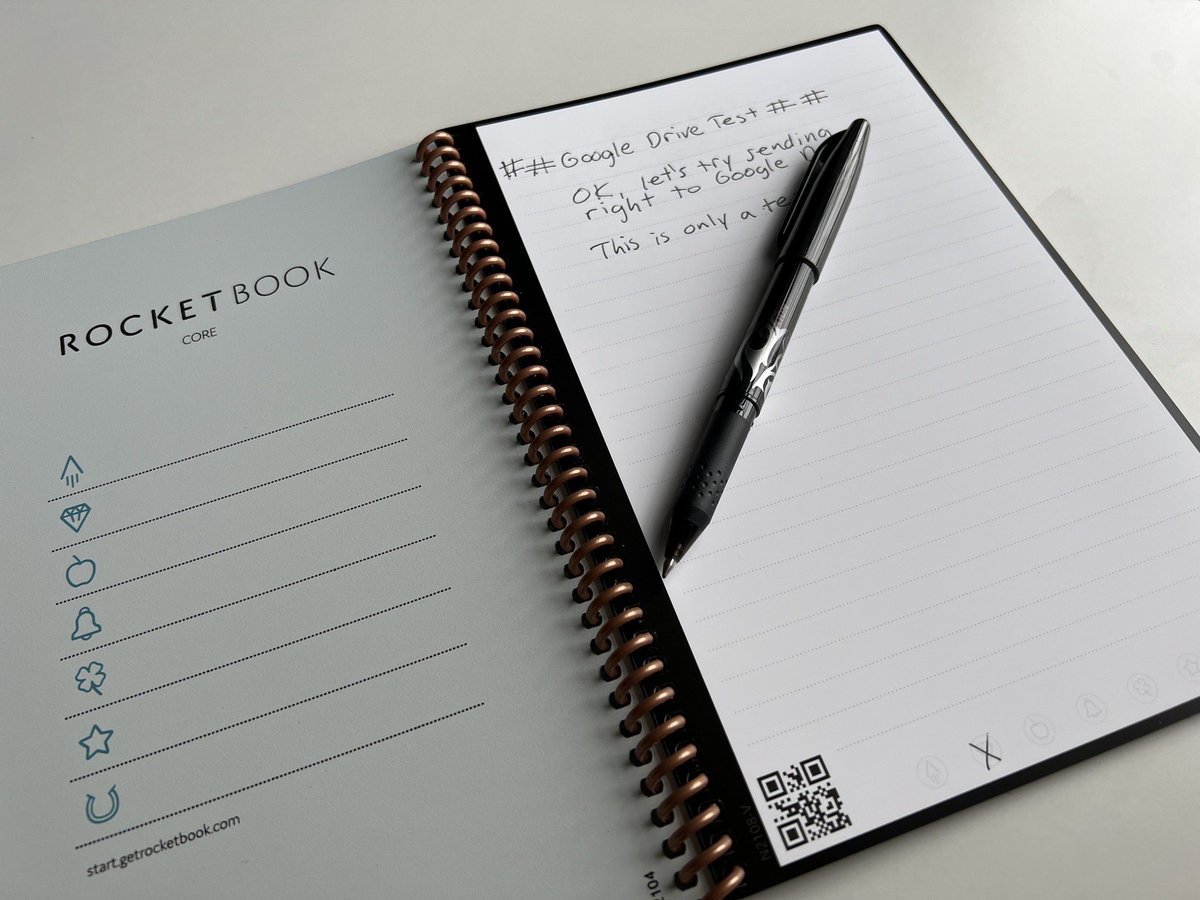 ROCKETBOOK
CORE
start.getrocketbook.com
## Google Drive Test ##
OK, let's try sending
right to Google
This is only a
X
N2108-V